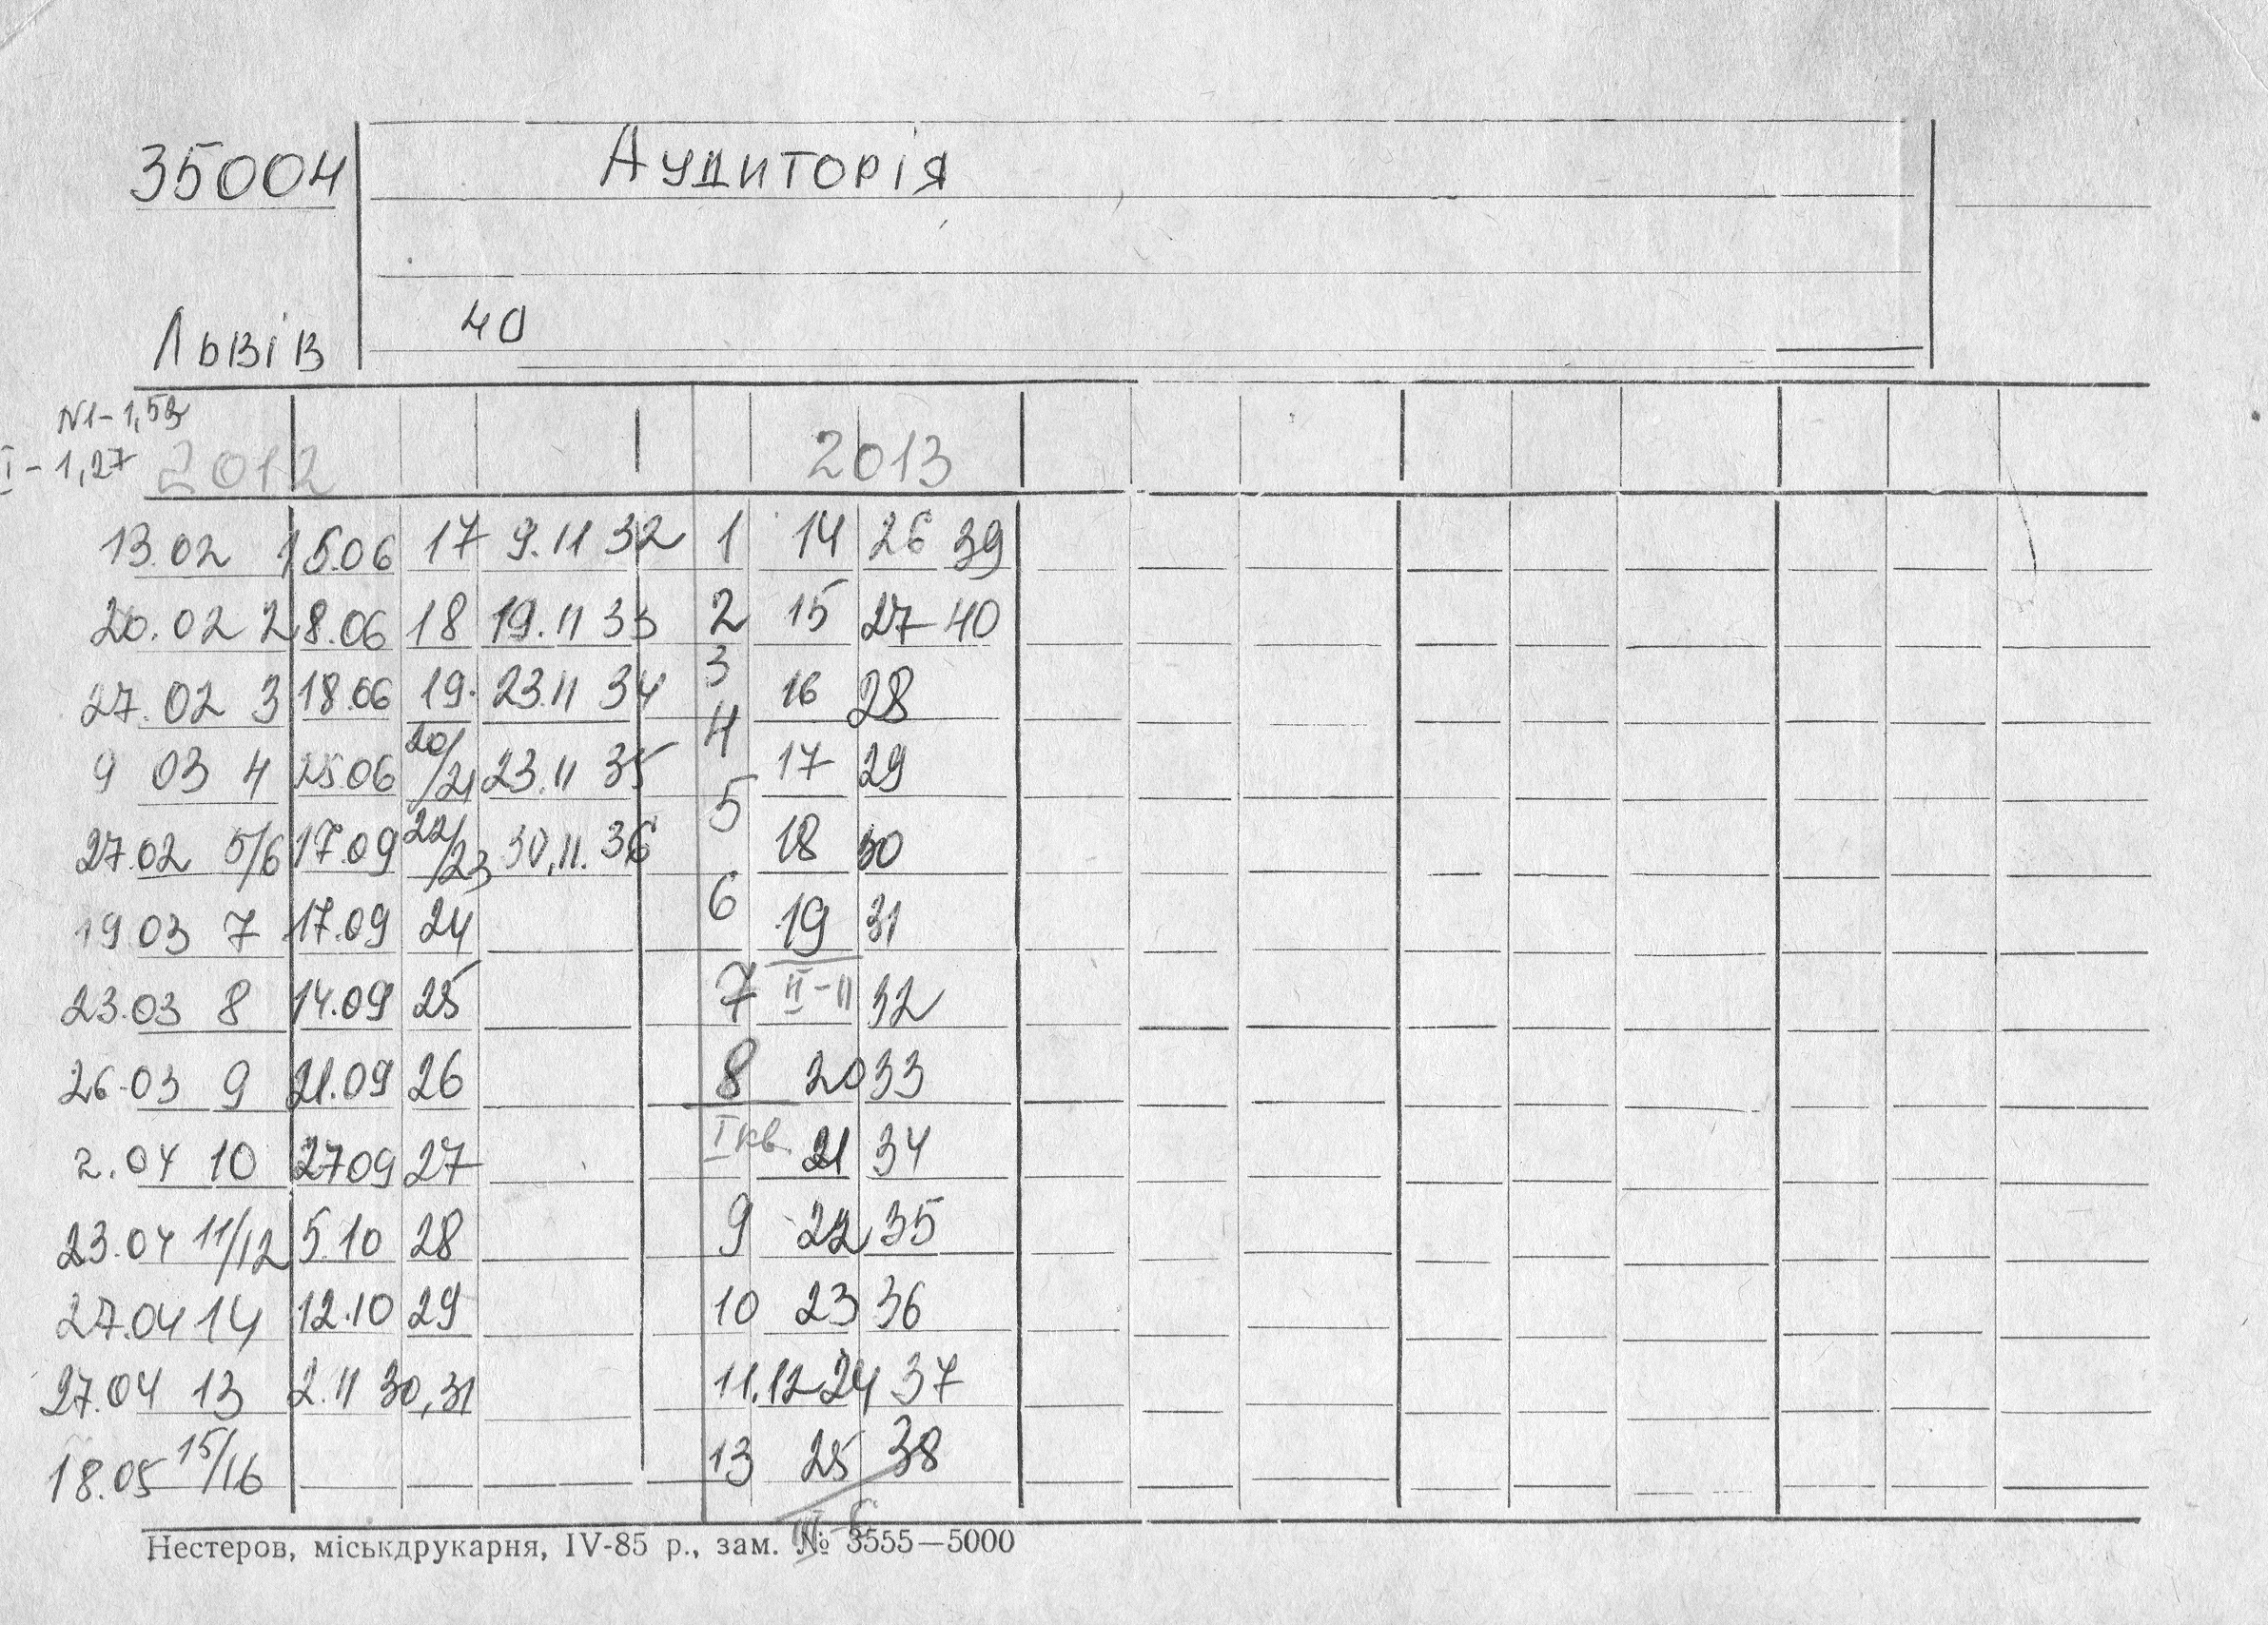 35004 Аудиторія
Львів 40
N1-1,53
I-1,27 2012 2013
13.02 1 5.06 17 9.11 32 1 14 26 39
20.02 2 8.06 18 19.11 33 2 15 27 40
27.02 3 18.06 19. 23.11 34 3 16 28
9 03 4 25.06 20/21 23.11 35 4 17 29
27.02 5/6 17.09 22/23 30.11. 36 5 18 30
19.03 7 17.09 24 6 19 31
23.03 8 14.09 25 7 II-11 32
26.03 9 21.09 26 8 20 33
2.04 10 27 09 27 I кв. 21 34
23.04 11/12 5.10 28 9 22 35
27.04 14 12.10 29 10 23 36
27.04 13 2.11 30,31 11,12 24 37
18.05 15/16 13 25 38
III-6
Нестеров, міськдрукарня, IV-85 р., зам. № 3555—5000